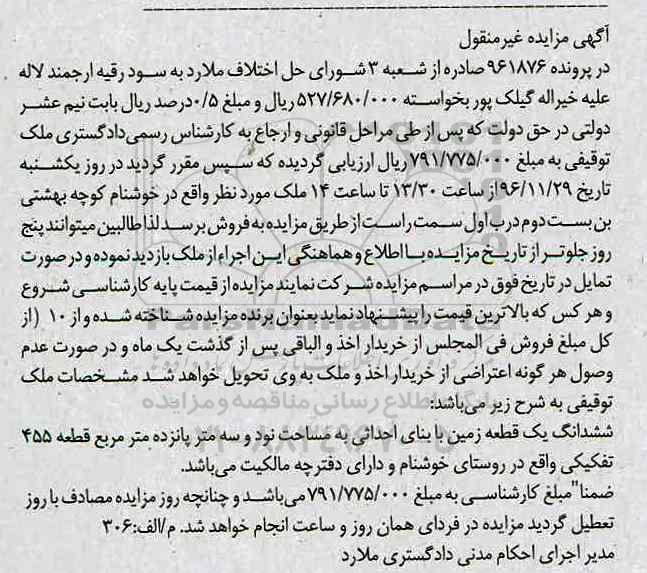 آگهی مزایده غیرمنقول
در پرونده ۹۶۱۸۷۶ صادره از شعبه ۳ شورای حل اختلاف ملارد به سود رقیه ارجمند لاله
علیه خیراله گیلک پور بخواسته ۵۲۷/۶۸۰/۰۰۰ ریال و مبلغ ۰/۵درصد ریال بابت نیم عشر
دولتی در حق دولت که پس از طی مراحل قانونی و ارجاع به کارشناس رسمی دادگستری ملک
توقیفی به مبلغ ۷۹۱/۷۷۵/۰۰۰ ریال ارزیابی گردیده که سپس مقرر گردید در روز یکشنبه
تاریخ ۹۶/۱۱/۲۹ از ساعت ۱۳/۳۰ تا ساعت ۱۴ ملک مورد نظر واقع در خوشنام کوچه بهشتی
بن بست دوم درب اول سمت راست از طریق مزایده به فروش برسد لذا طالبین میتوانند پنج
روز جلوتر از تاریخ مزایده با اطلاع و هماهنگی این اجراء از ملک بازدید نموده و در صورت
تمایل در تاریخ فوق در مراسم مزایده شرکت نمایند مزایده از قیمت پایه کارشناسی شروع
و هر کس که بالاترین قیمت را پیشنهاد نماید بعنوان برنده مزایده شناخته شده و از ۱۰ ( از
کل مبلغ فروش فی المجلس از خریدار اخذ و الباقی پس از گذشت یک ماه و در صورت عدم
وصول هر گونه اعتراضی از خریدار اخذ و ملک به وی تحویل خواهد شد مشخصات ملک
توقیفی به شرح زیر می‌باشد:
ششدانگ یک قطعه زمین با بنای احداثی به مساحت نود و سه متر پانزده متر مربع قطعه ۴۵۵
تفکیکی واقع در روستای خوشنام و دارای دفترچه مالکیت می‌باشد.
ضمنا" مبلغ کارشناسی به مبلغ ۷۹۱/۷۷۵/۰۰۰ می‌باشد و چنانچه روز مزایده مصادف با روز
تعطیل گردید مزایده در فردای همان روز و ساعت انجام خواهد شد. م/الف:۳۰۶
مدیر اجرای احکام مدنی دادگستری ملارد